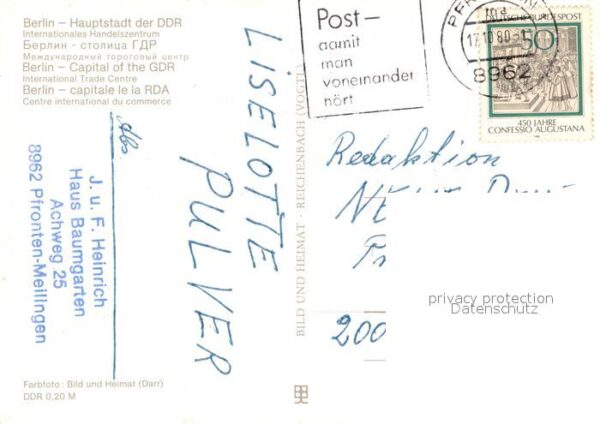 Berlin – Hauptstadt der DDR
Internationales Handelszentrum
Берлин · столица ГДР
Международный торговый центр
Berlin – Capital of the GDR
International Trade Centre
Berlin – capitale le ia RDA
Centre international du commerce
Abs.
J. u. F. Heinrich
Haus Baumgarten
Achweg 25
8962 Pfronten-Meilingen
Farbfoto: Bild und Heimat (Darr)
DDR 0,20 M
LISELOTTE
PULVER
BILD UND HEIMAT · REICHENBACH (VOGTL)
Post –
damit
man
voneinander
hört
17.10.80
8962
DEUTSCHE BUNDESPOST
50
450 JAHRE
CONFESSIO AUGUSTANA
Redaktion
200
privacy protection
Datenschutz